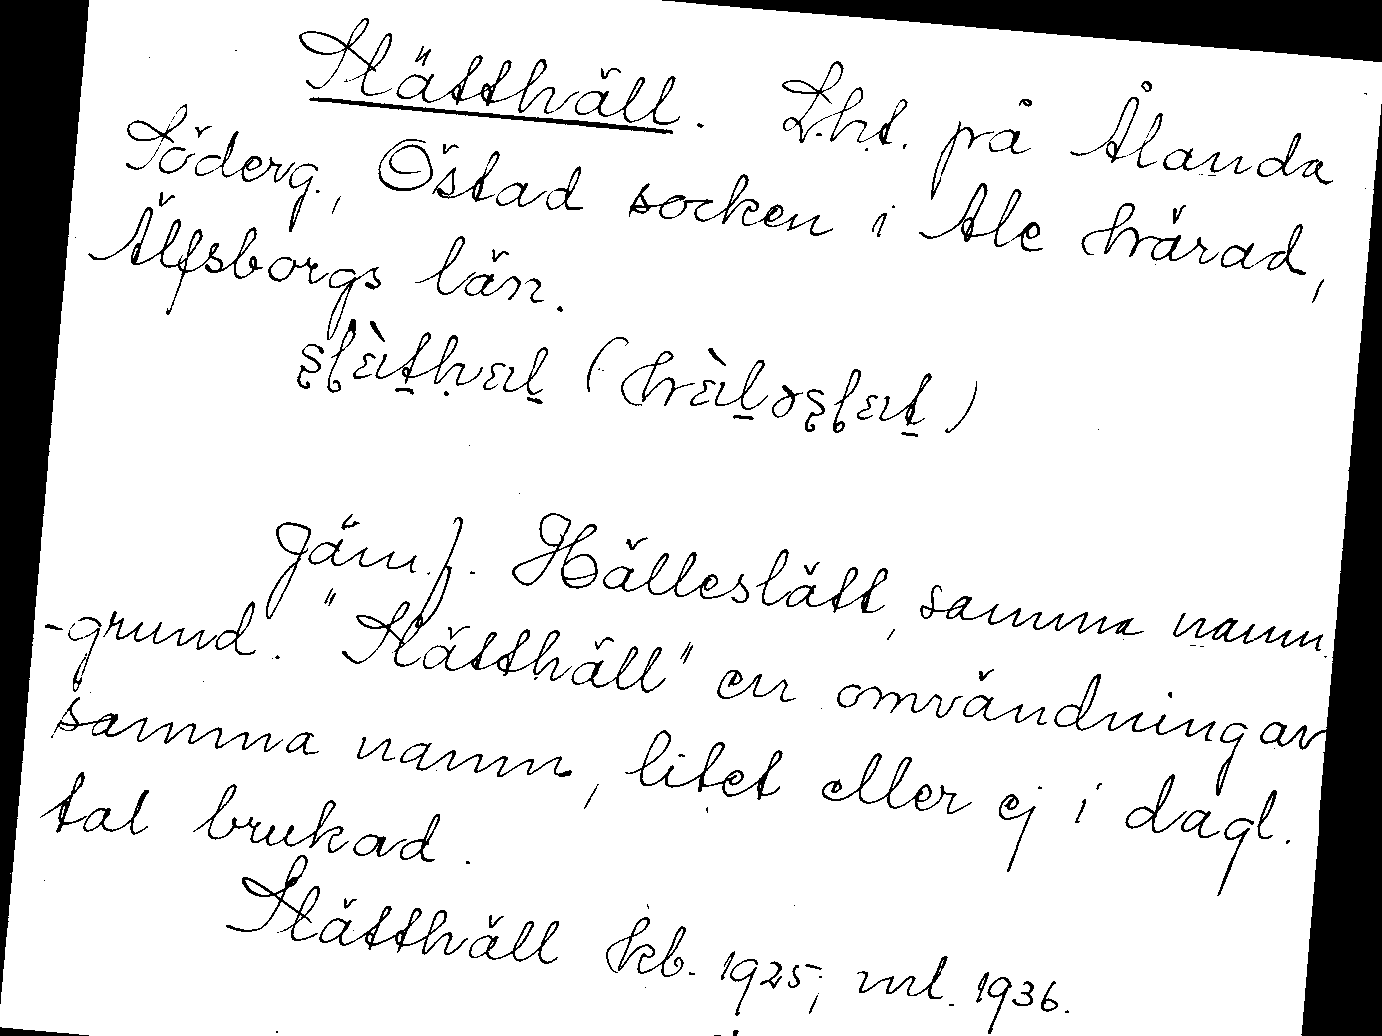 Slätthäll. Lht. på Ålanda
Söderg., Östad socken i Ale härad,
Älfsborgs län.
Jämf. Hälleslätt, samma namn
-grund. "Slätthäll" en omvändning av
samma namn, litet eller ej i dagl.
tal brukad.
Slätthäll kb. 1925, ml. 1936.